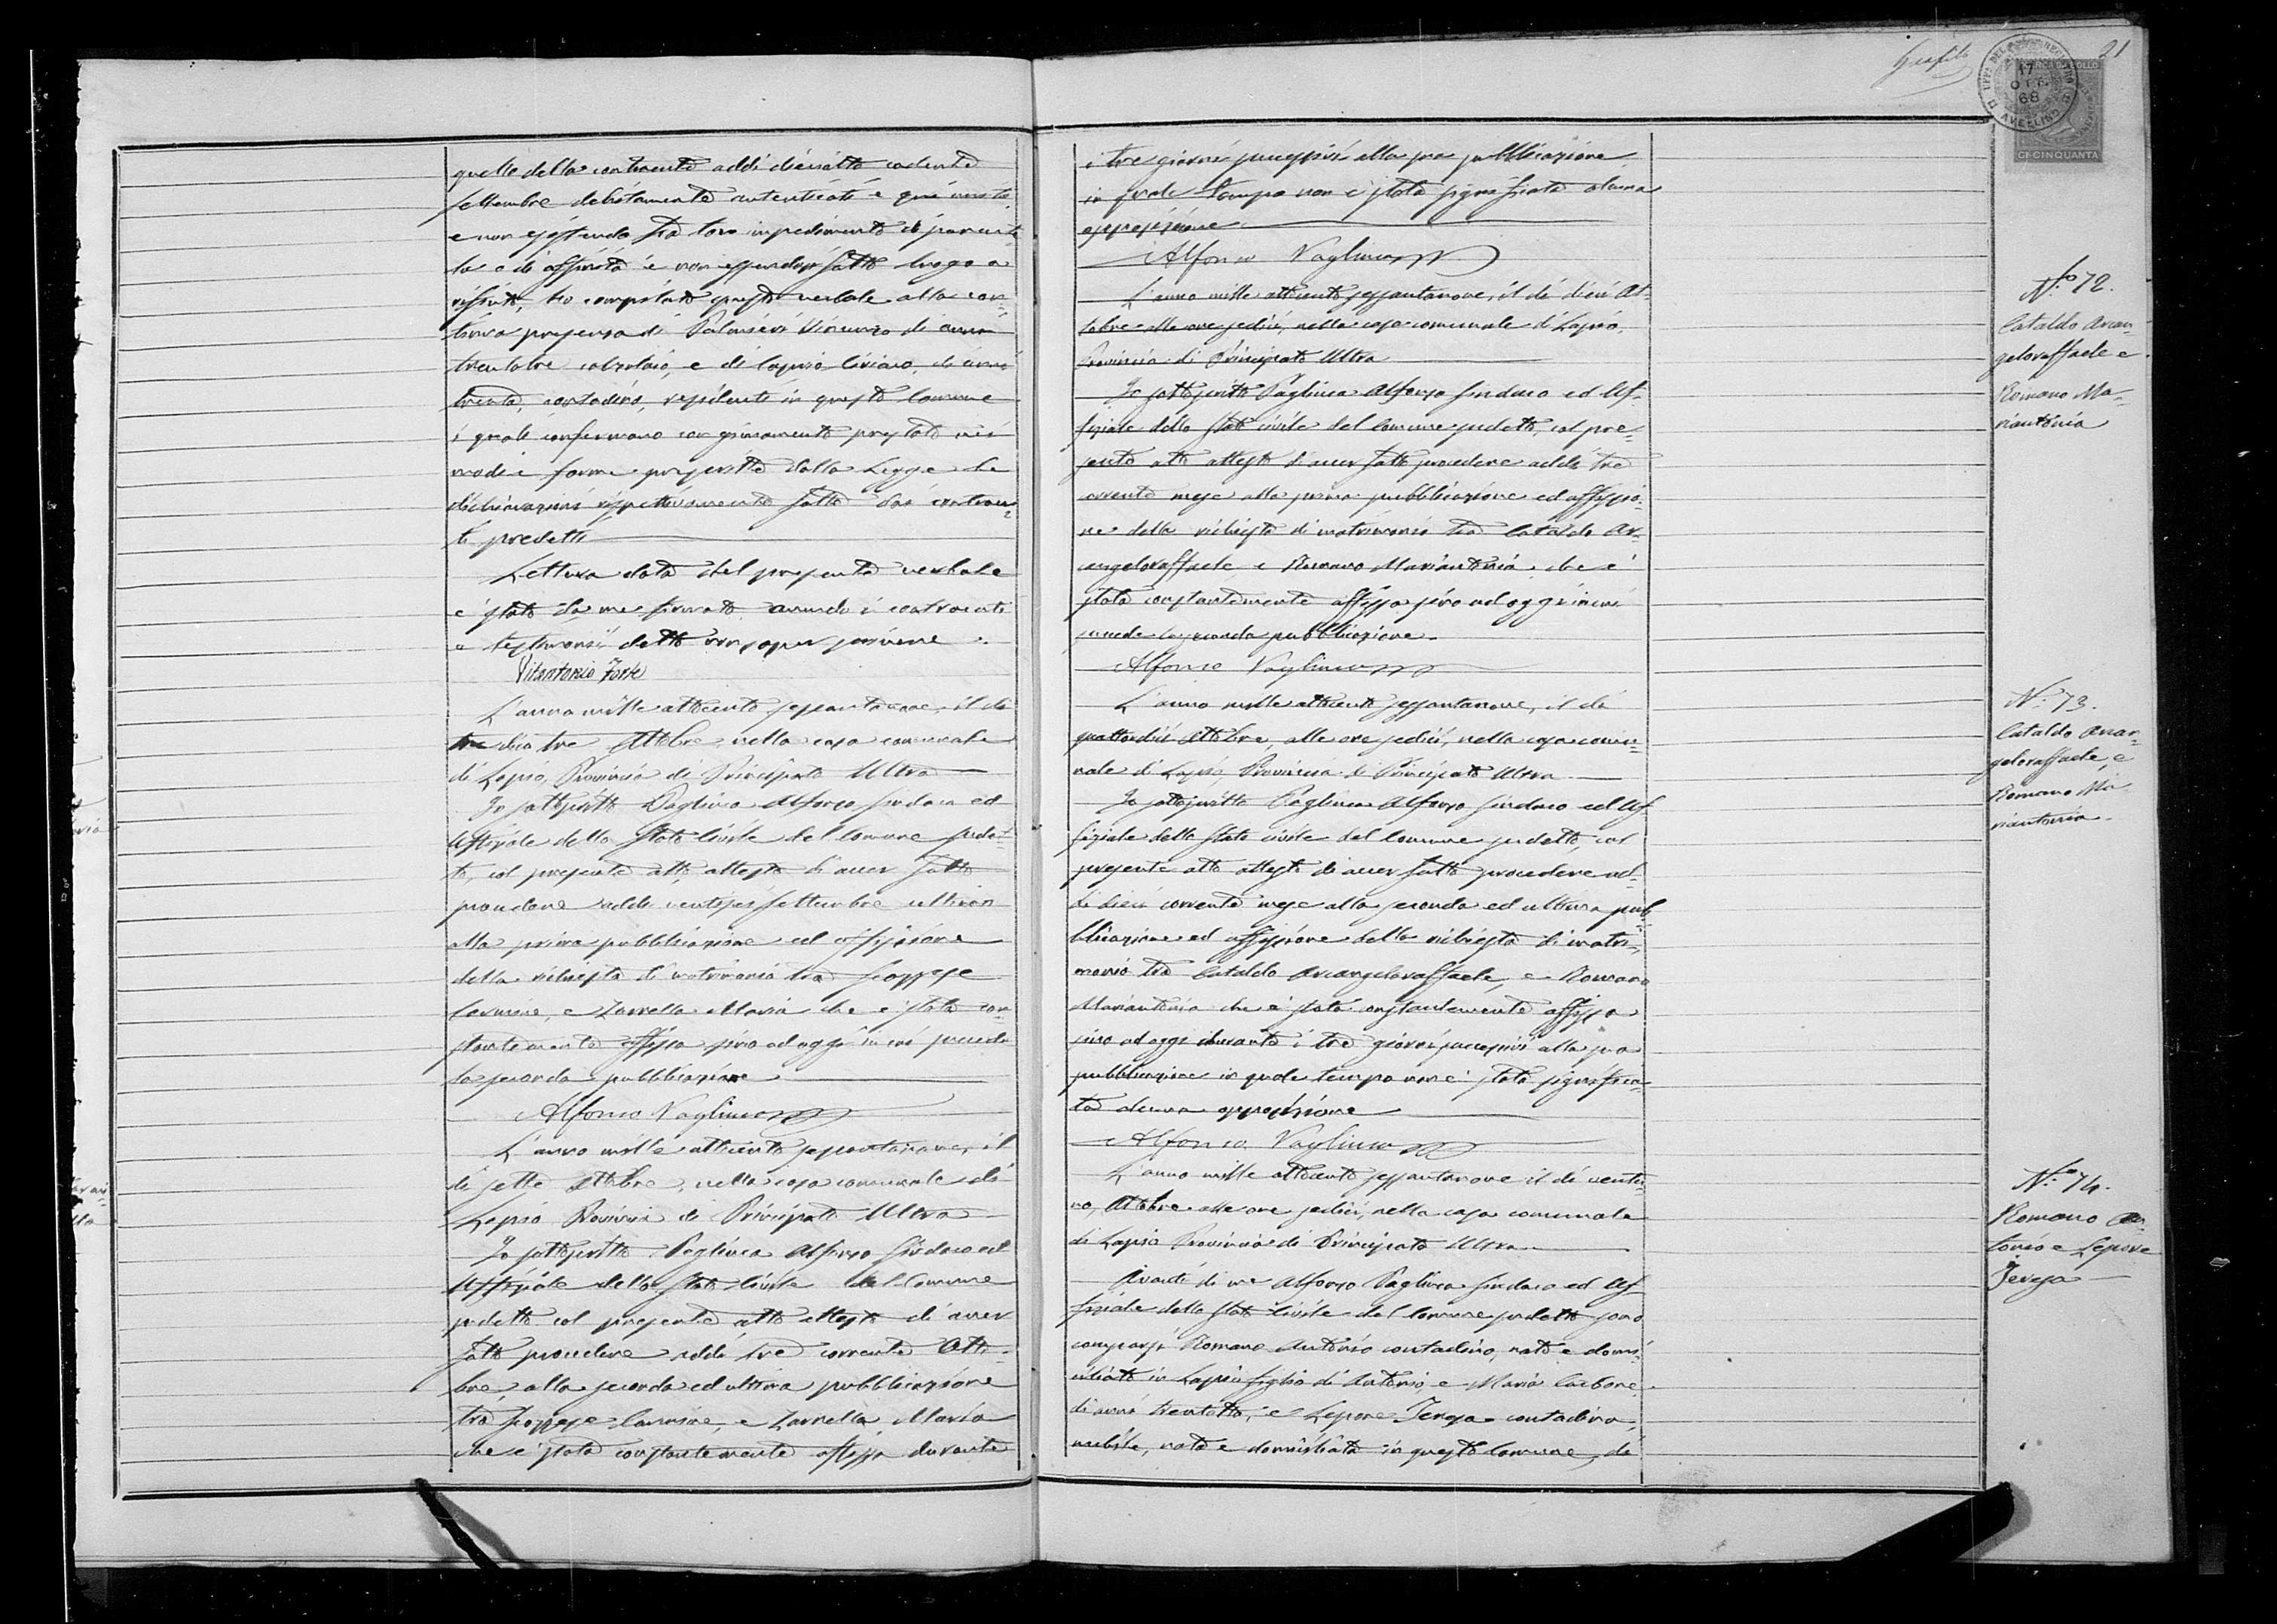 quello della contraente addì dieciotto cadente
settembre debitamente autenticati e qui inserti,
e non esistendo tra loro impedimento di parente-
la o di affinità e non essendosi fatto luogo a
rifiuto, ho compilato questo verbale alla con-
tinua presenza di Vincenzo di anni
trentatre calzolaio, e di Caprio Ciriaco, di anni
trenta, contadino, residenti in questo Comune
i quali confermano con giuramento prestato nei
modi e forme prescritte dalla Legge le
dichiarazioni rispettivamente fatte dai contraen-
ti predetti
Lettura data del presente verbale
è stato da me firmato avendo i contraenti
e testimonii detto non saper scrivere.
Vitantonio Forte
L'anno mille ottocento sessantanove, il dì
tre Ottobre, nella casa comunale
di Lapio, Provincia di Principato Ultra
Io sottoscritto Pagliuca Alfonso Sindaco ed
Uffiziale dello Stato Civile del Comune sudet-
to, col presente atto attesto di aver fatto
procedere addì ventisei settembre ultimo
alla prima pubblicazione ed affissione
della richiesta di matrimonio tra Scozzese
Carmine, e Zarrella Maria che è stata con-
stantemente affissa sino ad oggi in cui procede
la seconda pubblicazione
Alfonso Pagliuca
L'anno mille ottocento sessantanove, il
dì sette Ottobre, nella casa comunale di
Lapio Provincia di Principato Ultra
Io sottoscritto Pagliuca Alfonso Sindaco ed
Uffiziale dello Stato Civile del Comune
sudetto col presente atto attesto di aver
fatto procedere addì tre corrente Otto-
bre, alla seconda ed ultima pubblicazione
tra Scozzese Carmine, e Zarrella Maria
che è stata constantemente affissa durante
21
17
OTT.
68
AVELLINO
MARCA DA BOLLO
CT CINQUANTA
i tre giorni successivi alla sua pubblicazione
in quale tempo non è stata significata alcuna
opposizione
Alfonso Pagliuca
L'anno mille ottocento sessantanove, il dì dieci Ot-
tobre alle ore sedici, nella casa comunale di Lapio,
Provincia di Principato Ultra
Io sottoscritto Pagliuca Alfonso Sindaco ed Uf-
fiziale dello Stato civile del Comune sudetto, col pre-
sente atto attesto d'aver fatto procedere addì tre
corrente mese alla prima pubblicazione ed affissio-
ne della richiesta di matrimonio tra Cataldo Ar-
cangeloraffaele e Romano Mariantonia che è
stata constantemente affissa sino ad oggi in cui
procede la seconda pubblicazione
Alfonso Pagliuca
L'anno mille ottocento sessantanove, il dì
quattordici Ottobre, alle ore sedici, nella casa comu-
nale di Lapio, Provincia di Principato Ultra
Io sottoscritto Pagliuca Alfonso Sindaco ed Uf-
fiziale dello Stato civile del Comune sudetto, col
presente atto attesto di aver fatto procedere ad-
dì dieci corrente mese alla seconda ed ultima pub-
blicazione ed affissione della richiesta di matri-
monio tra Cataldo Arcangeloraffaele, e Romano
Mariantonia che è stata constantemente affissa
sino ad oggi durante i tre giorni successivi alla sua
pubblicazione in quale tempo non è stata significa-
ta alcuna opposizione
Alfonso Pagliuca
L'anno mille ottocento sessantanove il dì ventu-
no, Ottobre alle ore sedici, nella casa comunale
di Lapio Provincia di Principato Ultra
Avanti di me Alfonso Pagliuca Sindaco ed Uf-
fiziale dello Stato Civile del Comune sudetto sono
comparsi Romano Antonio contadino, nato e domi-
ciliato in Lapio figlio di Antonio, e Maria Carbone
di anni trentotto, e Lepore Teresa contadina,
nubile, nata e domiciliata in questo Comune, di
No. 72.
Cataldo Arcan-
geloraffaele e
Romano Ma-
riantonia
No. 73.
Cataldo Arcan-
geloraffaele, e
Romano Ma-
riantonia
No. 74.
Romano An-
tonio e Lepore
Teresa